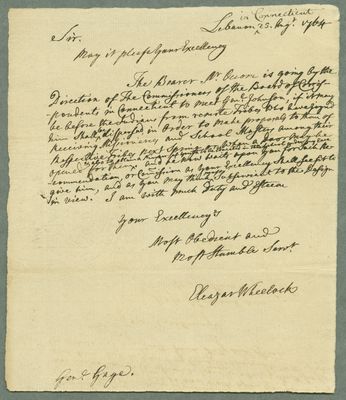 in Connecticut
Lebanon 25. Augt 1764
Sir.
May it please Your Excellency
The Bearer Mr Occom is going by the
Direction of The Commissioners of the Board of Corre-
spondents in Connecticut to meet Genl Johnson, if it may
be before the Indians from remote Tribes, who have joyned
him shall be dispersed in Order to make proposals to them of
Receiving Missionaries and School Masters among their
Respective Tribes next Spring
opened for
commendation, or Commission as Your Excellency shall see fit to
give him, and as You may think Subservient to the Design
in view. I am with much Duty and Esteem
Your Excellency's
Most Obedient and
Most Humble Servt
Eleazar Wheelock
Genl Gage.